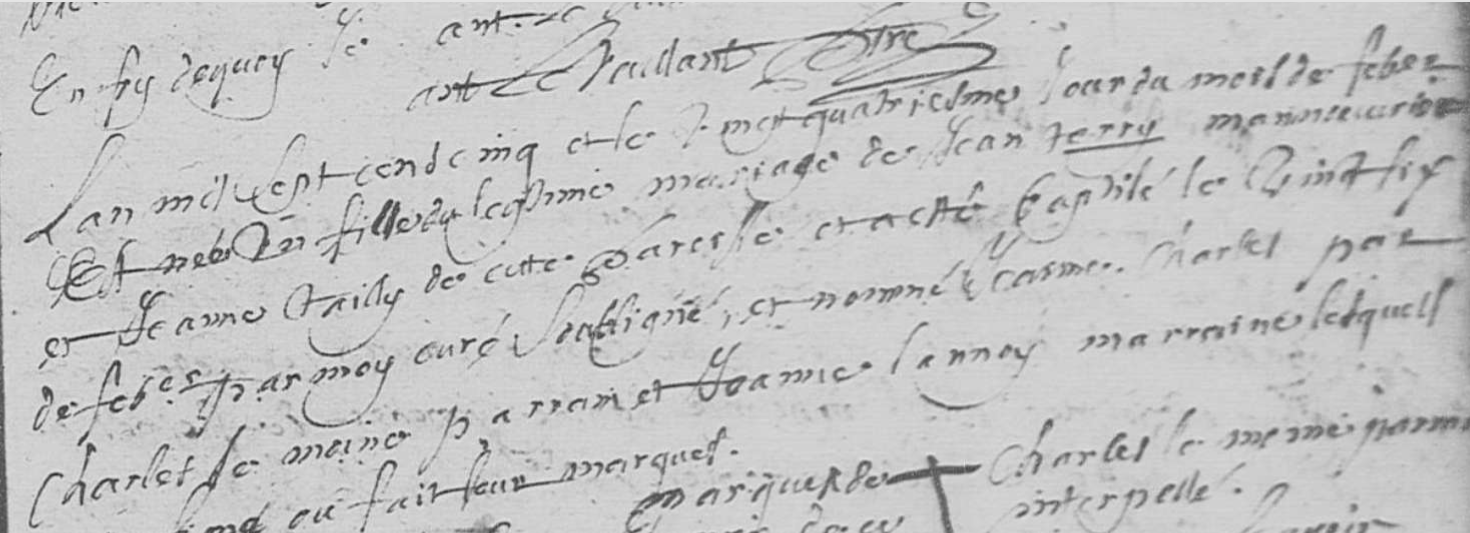 En foy de quoy Je
ant. Le Vaillant Ptre
Lan mil sept cends cinq et le vingt quatriesme Jour du mois de feber
Est neë Un fille du legitime mariage de Jean terry manneuvrier
et Jeanne Tailly de cette Paroisse et a esté baptisé le Vingt six
de feber par moy curé soubsigné, et nommé Jeanne. Charles par
Charles le moine parrain et Joanne lannoy marraine lesquels
ou fait leur marques.
marques de Charles le moine parain
interpellé.